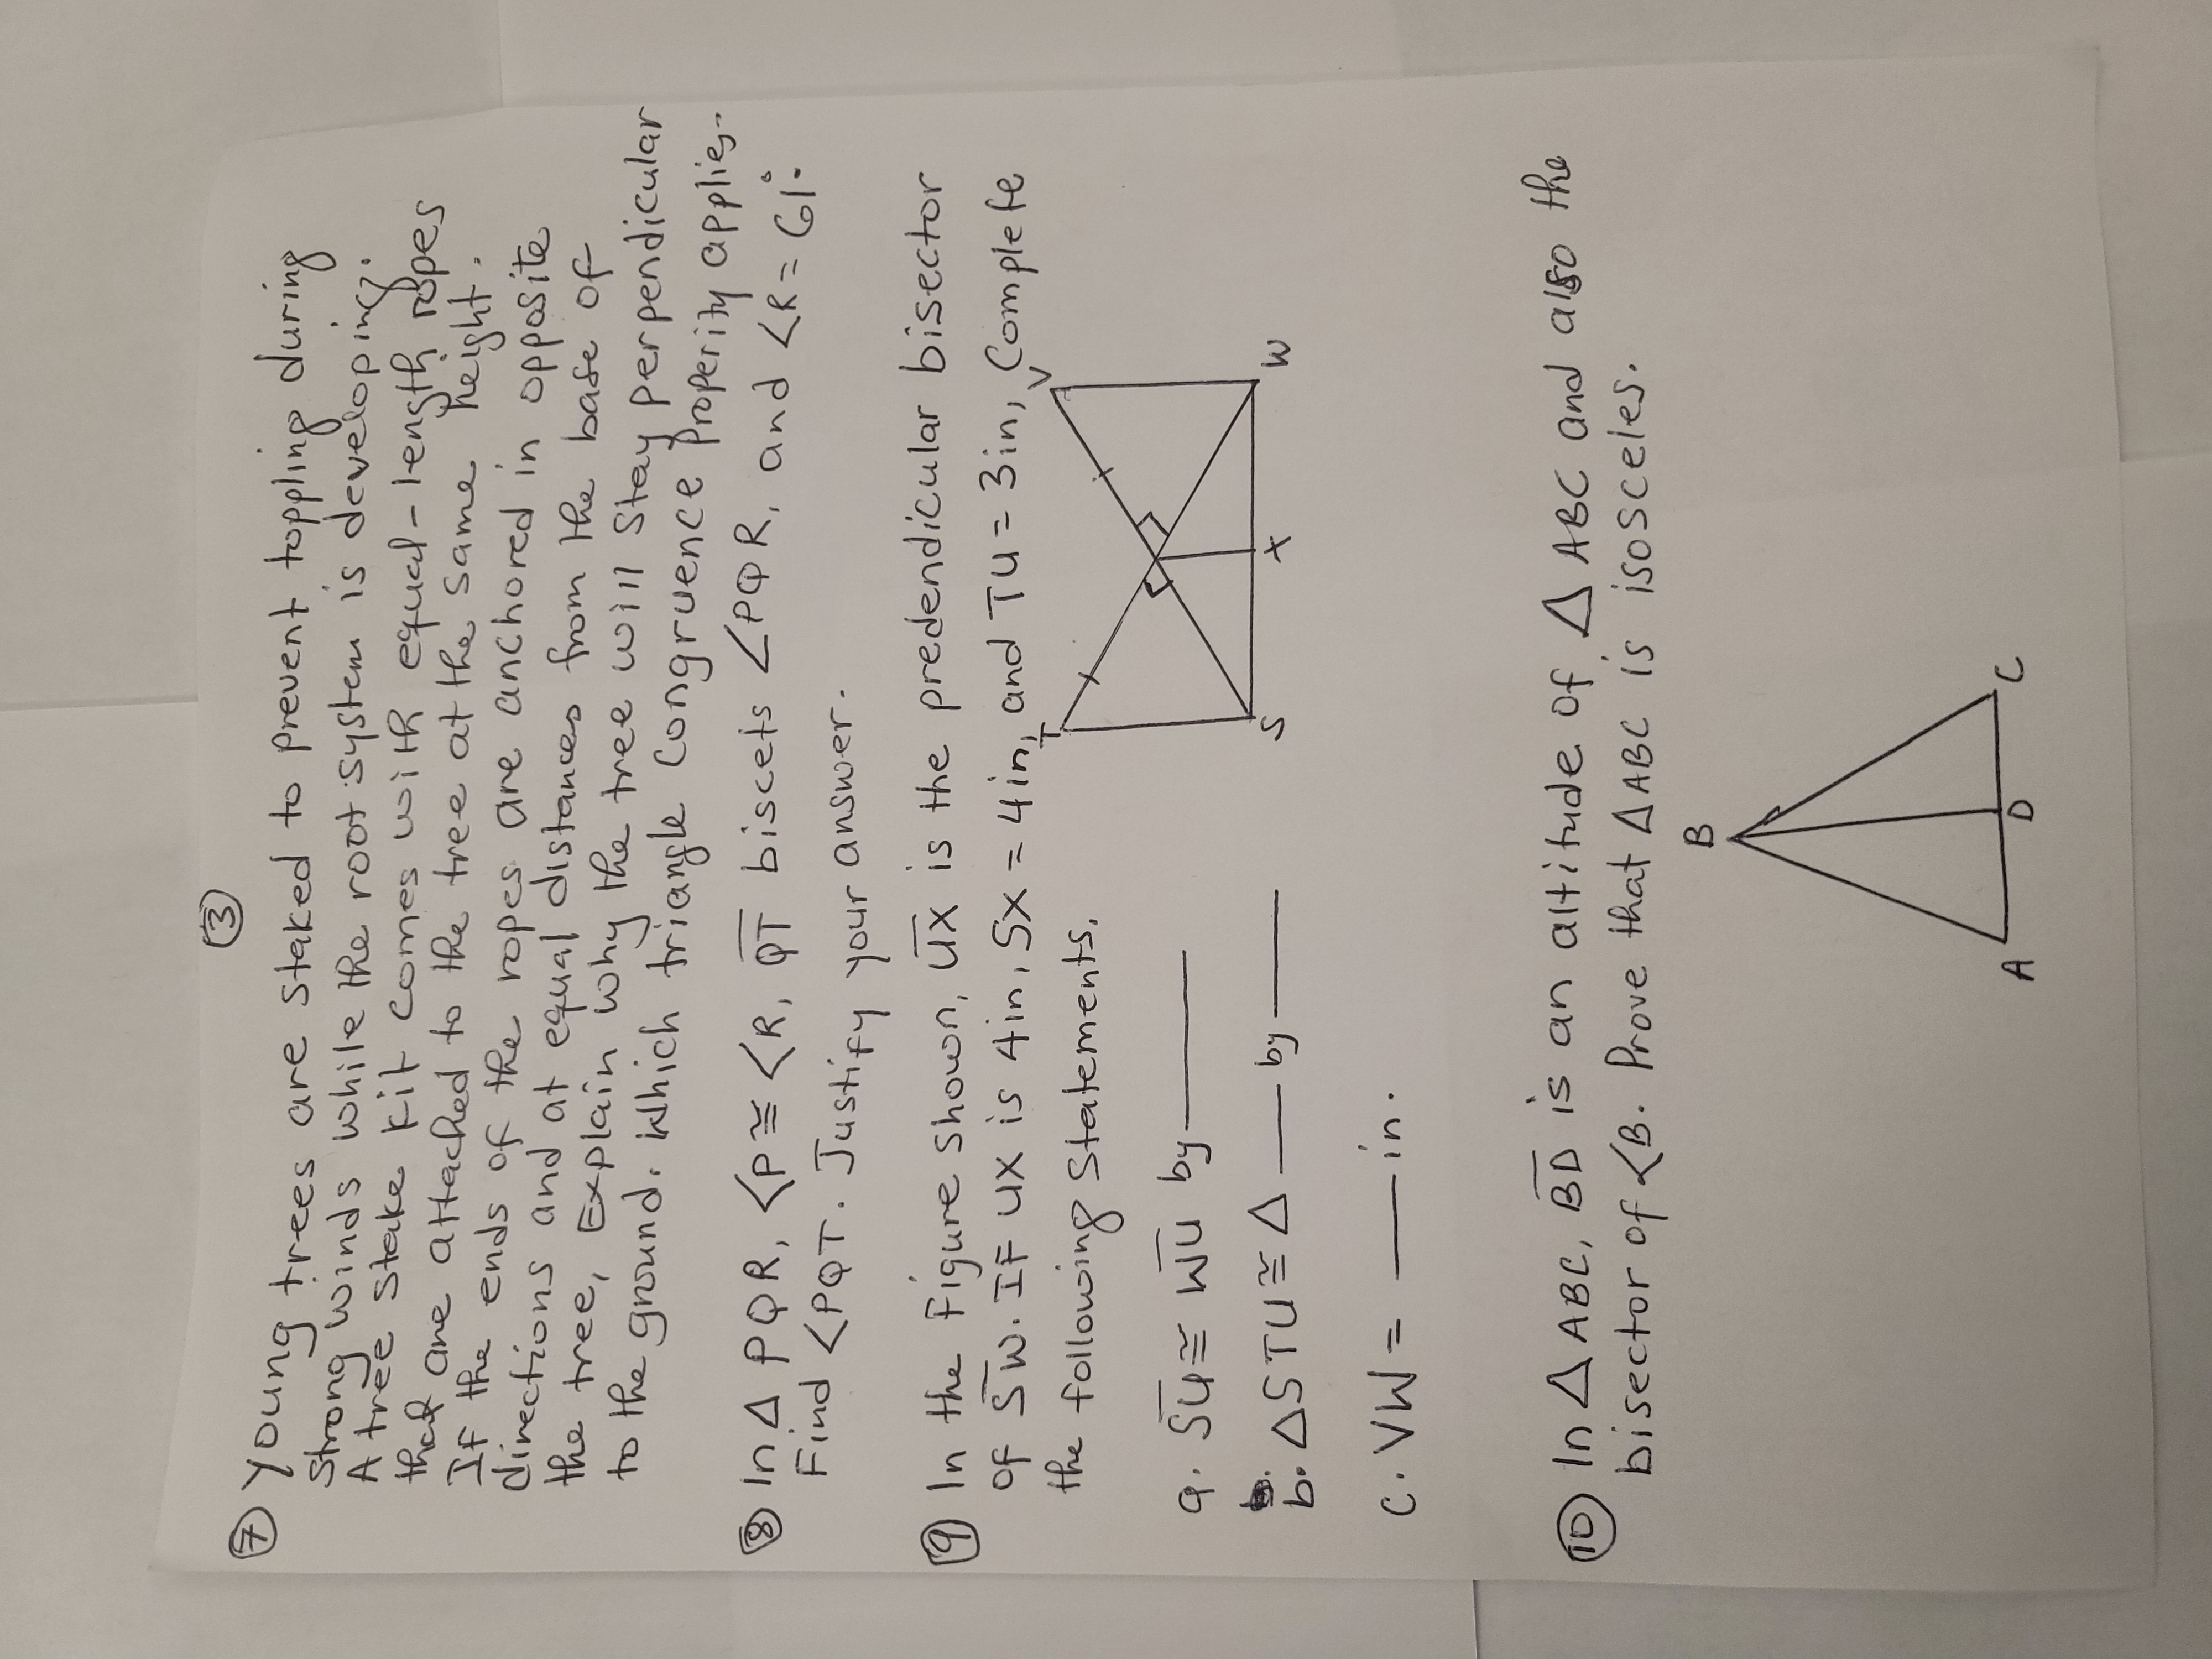 ③
⑦ Young trees are staked to prevent toppling during
strong winds while the root system is developing.
A tree stake kit comes with equal-length ropes
that are attached to the tree at the same height.
If the ends of the ropes are anchored in opposite
directions and at equal distances from the base of
the tree, Explain why the tree will stay perpendicular
to the ground. Which triangle congruence properity applies.
⑧ In △ PQR, <P ≅ <R, Q̅T̅ biscets ∠PQR, and <R = 61°.
Find <PQT. Justify your answer.
⑨ In the Figure shown, U̅X̅ is the predendicular bisector
of S̅W̅. IF UX is 4in, SX = 4in, and TU = 3in, Complete
the following statements.
T
V
S
X
W
a. S̅U̅ ≅ W̅U̅ by ____
b. △STU ≅ △ ____ by ____
C. VW = ____ in.
⑩ In △ ABC, B̅D̅ is an altitude of △ ABC and also the
bisector of <B. Prove that △ABC is isosceles.
B
A
D
C